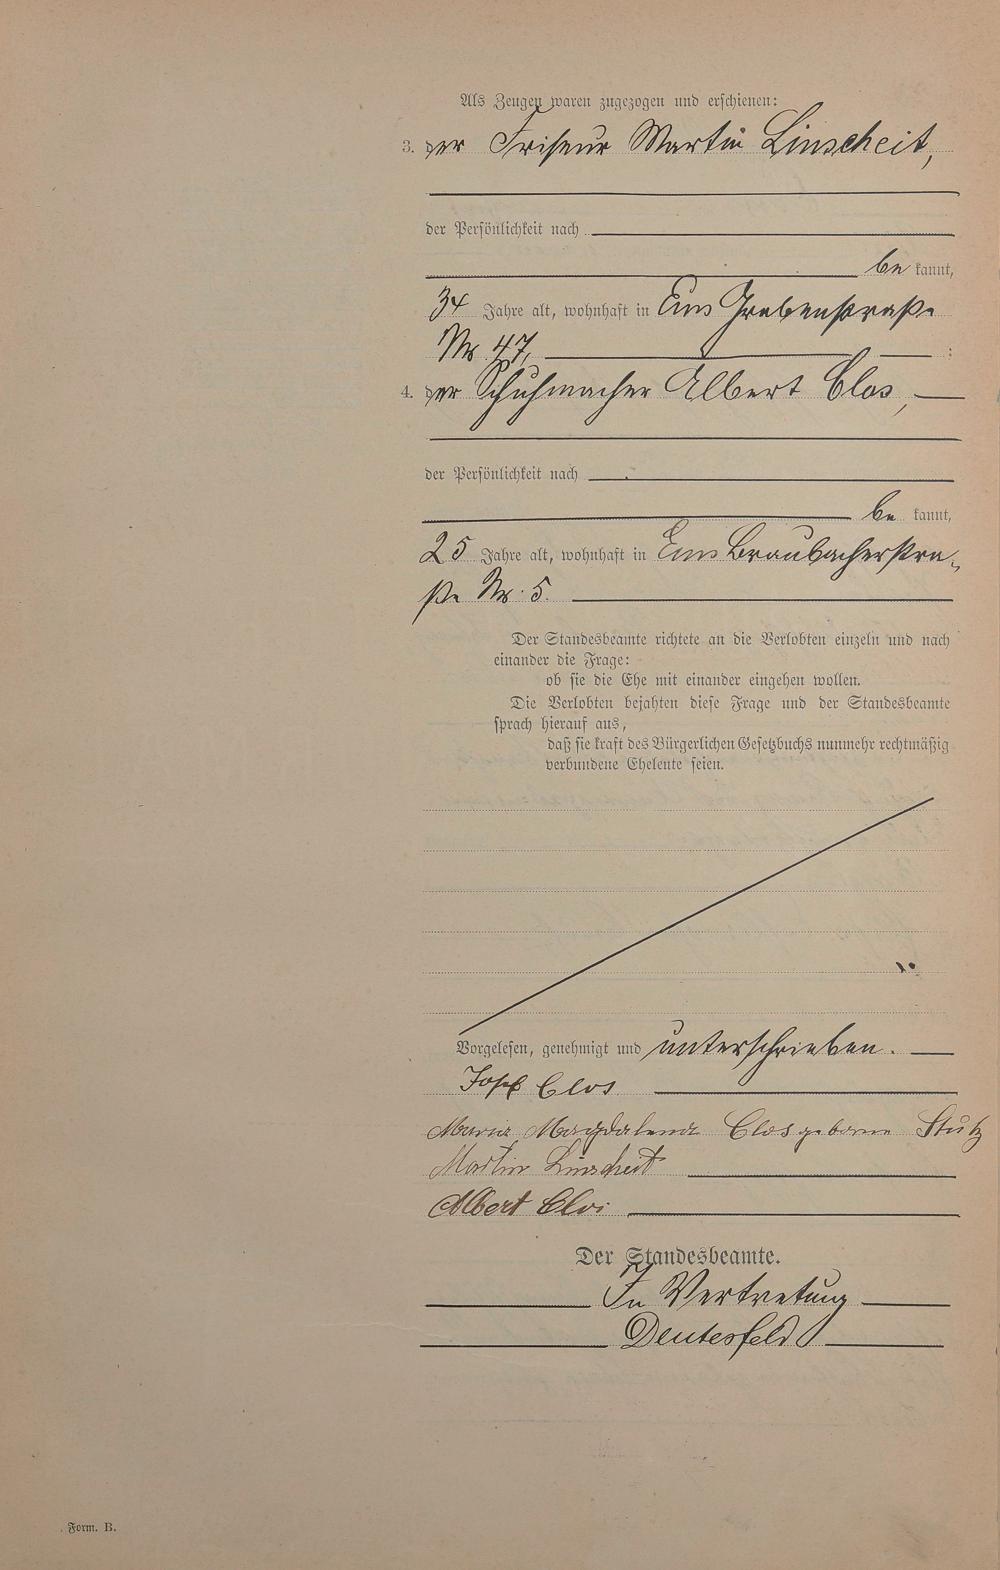 Als Zeugen waren zugezogen und erschienen:
3. der Friseur Martin Linscheit,
der Persönlichkeit nach
be kannt,
34 Jahre alt, wohnhaft in Ems Grabenstraße
Nr. 47, :
4. der Schuhmacher Albert Clos,
der Persönlichkeit nach
be kannt,
25 Jahre alt, wohnhaft in Ems Braubacherstra-
ße Nr. 5.
Der Standesbeamte richtete an die Verlobten einzeln und nach
einander die Frage:
ob sie die Ehe mit einander eingehen wollen.
Die Verlobten bejahten diese Frage und der Standesbeamte
sprach hierauf aus,
daß sie kraft des Bürgerlichen Gesetzbuchs nunmehr rechtmäßig
verbundene Eheleute seien.
Vorgelesen, genehmigt und unterschrieben.
Josef Clos
Maria Magdalena Clos geborne Stutz
Martin Linscheit
Albert Clos
Der Standesbeamte.
In Vertretung
Deutesfeld
Form. B.